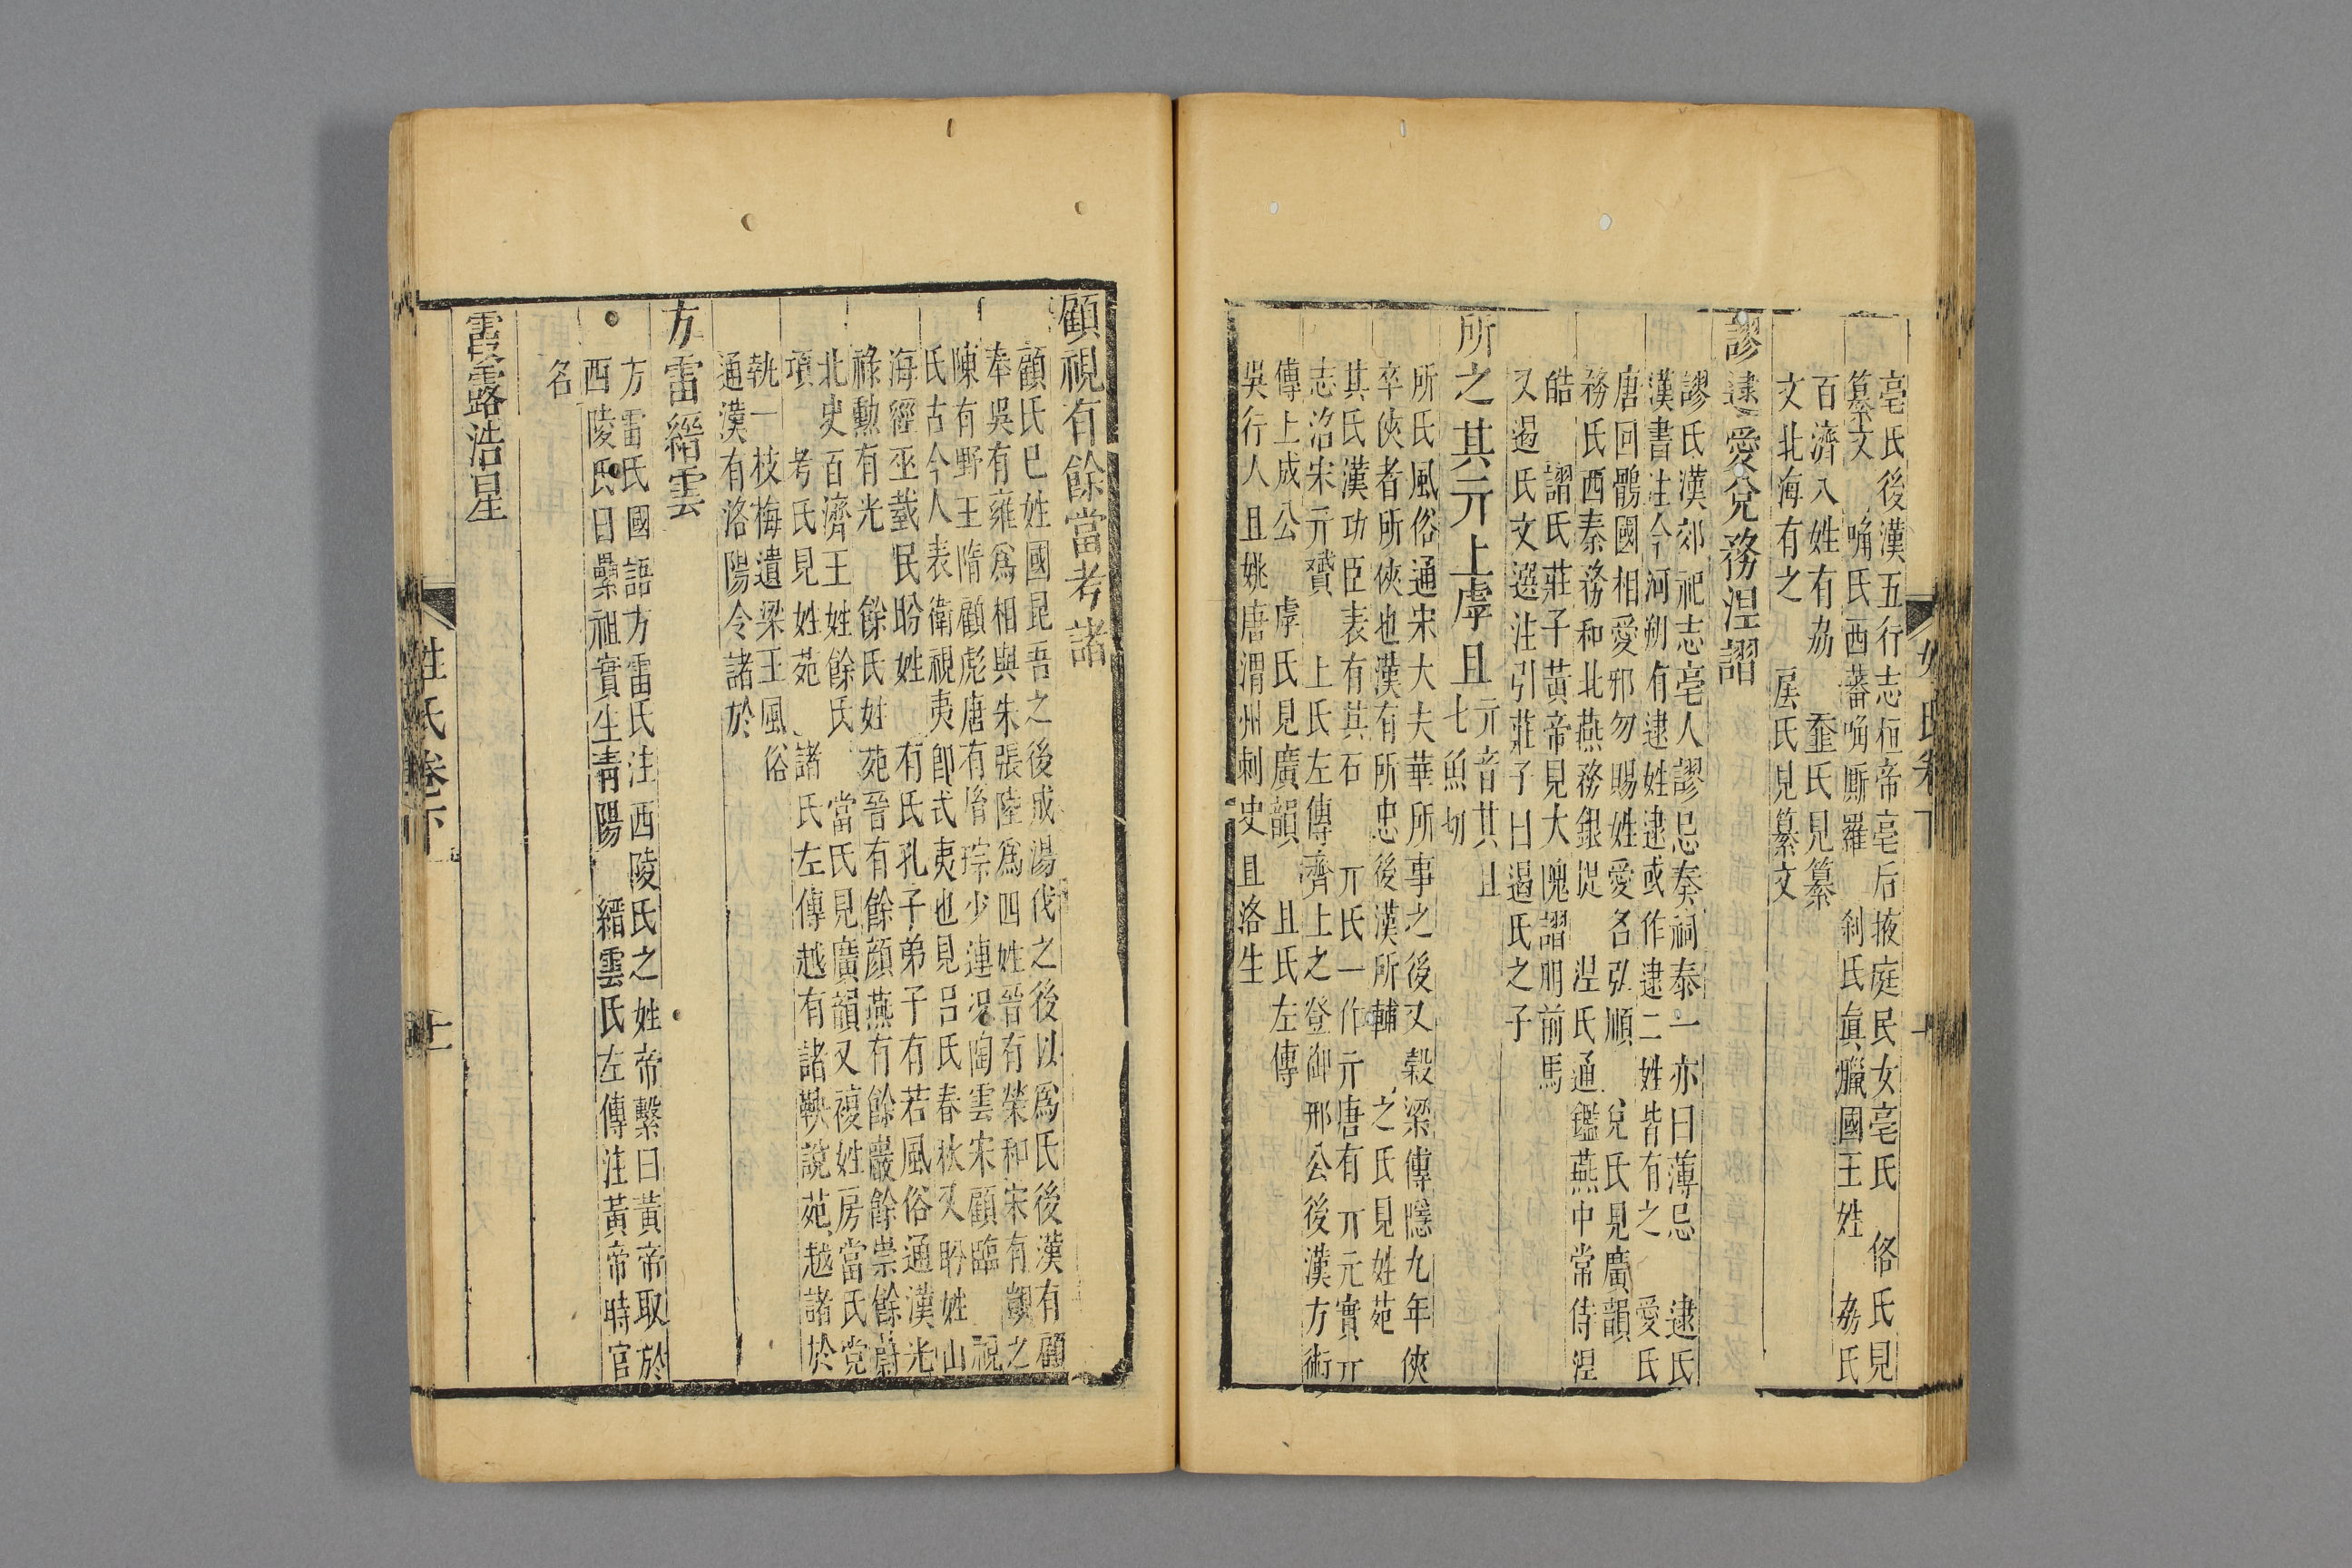 亳氏後漢五行志桓帝亳后掖庭民女亳氏　㑻氏見
纂文　唃氏西蕃唃厮羅　剎氏眞臘國王姓　劦氏
百濟八姓有劦　䖈氏見纂
文北海有之　㕓氏見纂文
謬逮愛兊務涅謵
謬氏漢郊祀志亳人謬忌奏祠泰一亦曰薄忌　逮氏
漢書注今河朔有逮姓逮或作逮二姓皆有之　愛氏
唐回鶻國相愛邪勿賜姓愛名弘順　兊氏見廣韻
務氏西秦務和北燕務銀提　涅氏通鑑燕中常侍涅
皓　謵氏莊子黃帝見大隗謵朋前馬
又遏氏文選注引莊子曰遏氏之子
所之其亓上虖且亓音其　且
七魚切
所氏風俗通宋大夫華所事之後又穀梁傳隱九年俠
卒俠者所俠也漢有所忠後漢所輔　之氏見姓苑
其氏漢功臣表有其石　亓氏一作亓唐有亓元實亓
志沼宋亓贇　上氏左傳齊上之登御邢公後漢方術
傳上成公　虖氏見廣韻　且氏左傳
吳行人且姚唐渭州刺史且洛生
姓氏卷下
顧視有餘當考諸
顧氏巳姓國昆吾之後成湯伐之後以爲氏後漢有顧
奉吳有雍爲相與朱張陸爲四姓晉有榮和宋有覬之
陳有野王隋顧彪唐有胤琮少連況陶雲宋顧臨　視
氏古今人表衛視夷卽式夷也見呂氏春秋又盻姓山
海經巫臷民盻姓　有氏孔子弟子有若風俗通漢光
祿勳有光　餘氏姓苑晉有餘顏燕有餘巖餘崇餘蔚
北史百濟王姓餘氏　當氏見廣韻又複姓房當氏党
項　考氏見姓苑　諸氏左傳越有諸鞅說苑越諸於
執一枝梅遺梁王風俗
通漢有洛陽令諸於
方雷縉雲
方雷氏國語方雷氏注西陵氏之姓帝繫曰黃帝取於
西陵氏曰纍祖實生青陽　縉雲氏左傳注黃帝時官
名
霞露浩星
姓氏卷下
十一